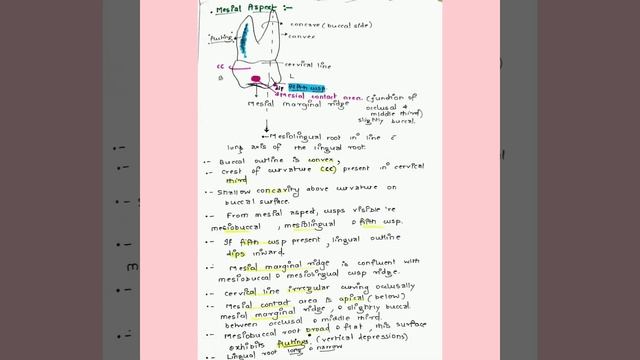 • Mesial Aspect :-
concave (buccal side)
convex
"fluting"
cervical line
CC
B
L
dip
fifth cusp
Mesial contact area (junction of
occlusal &
middle third)
slightly buccal.
Mesial marginal ridge
•- Mesiolingual root in line c
long axis of the lingual root.
•- Buccal outline is convex,
•- Crest of curvature (CC) present in cervical
third
•- Shallow concavity above curvature on
buccal surface.
•- From mesial aspect, cusps visible 're
mesiobuccal, mesiolingual & fifth cusp.
•- If fifth cusp present, lingual outline
dips inward.
•- Mesial marginal ridge is confluent with
mesiobuccal & mesiolingual cusp ridge.
•- Cervical line irregular curving occlusally
•- Mesial contact area is apical (below)
mesial marginal ridge, & slightly buccal
between occlusal & middle third.
•- Mesiobuccal root broad & flat, this surface
exhibits flutings. (vertical depressions)
•- Lingual root long & narrow